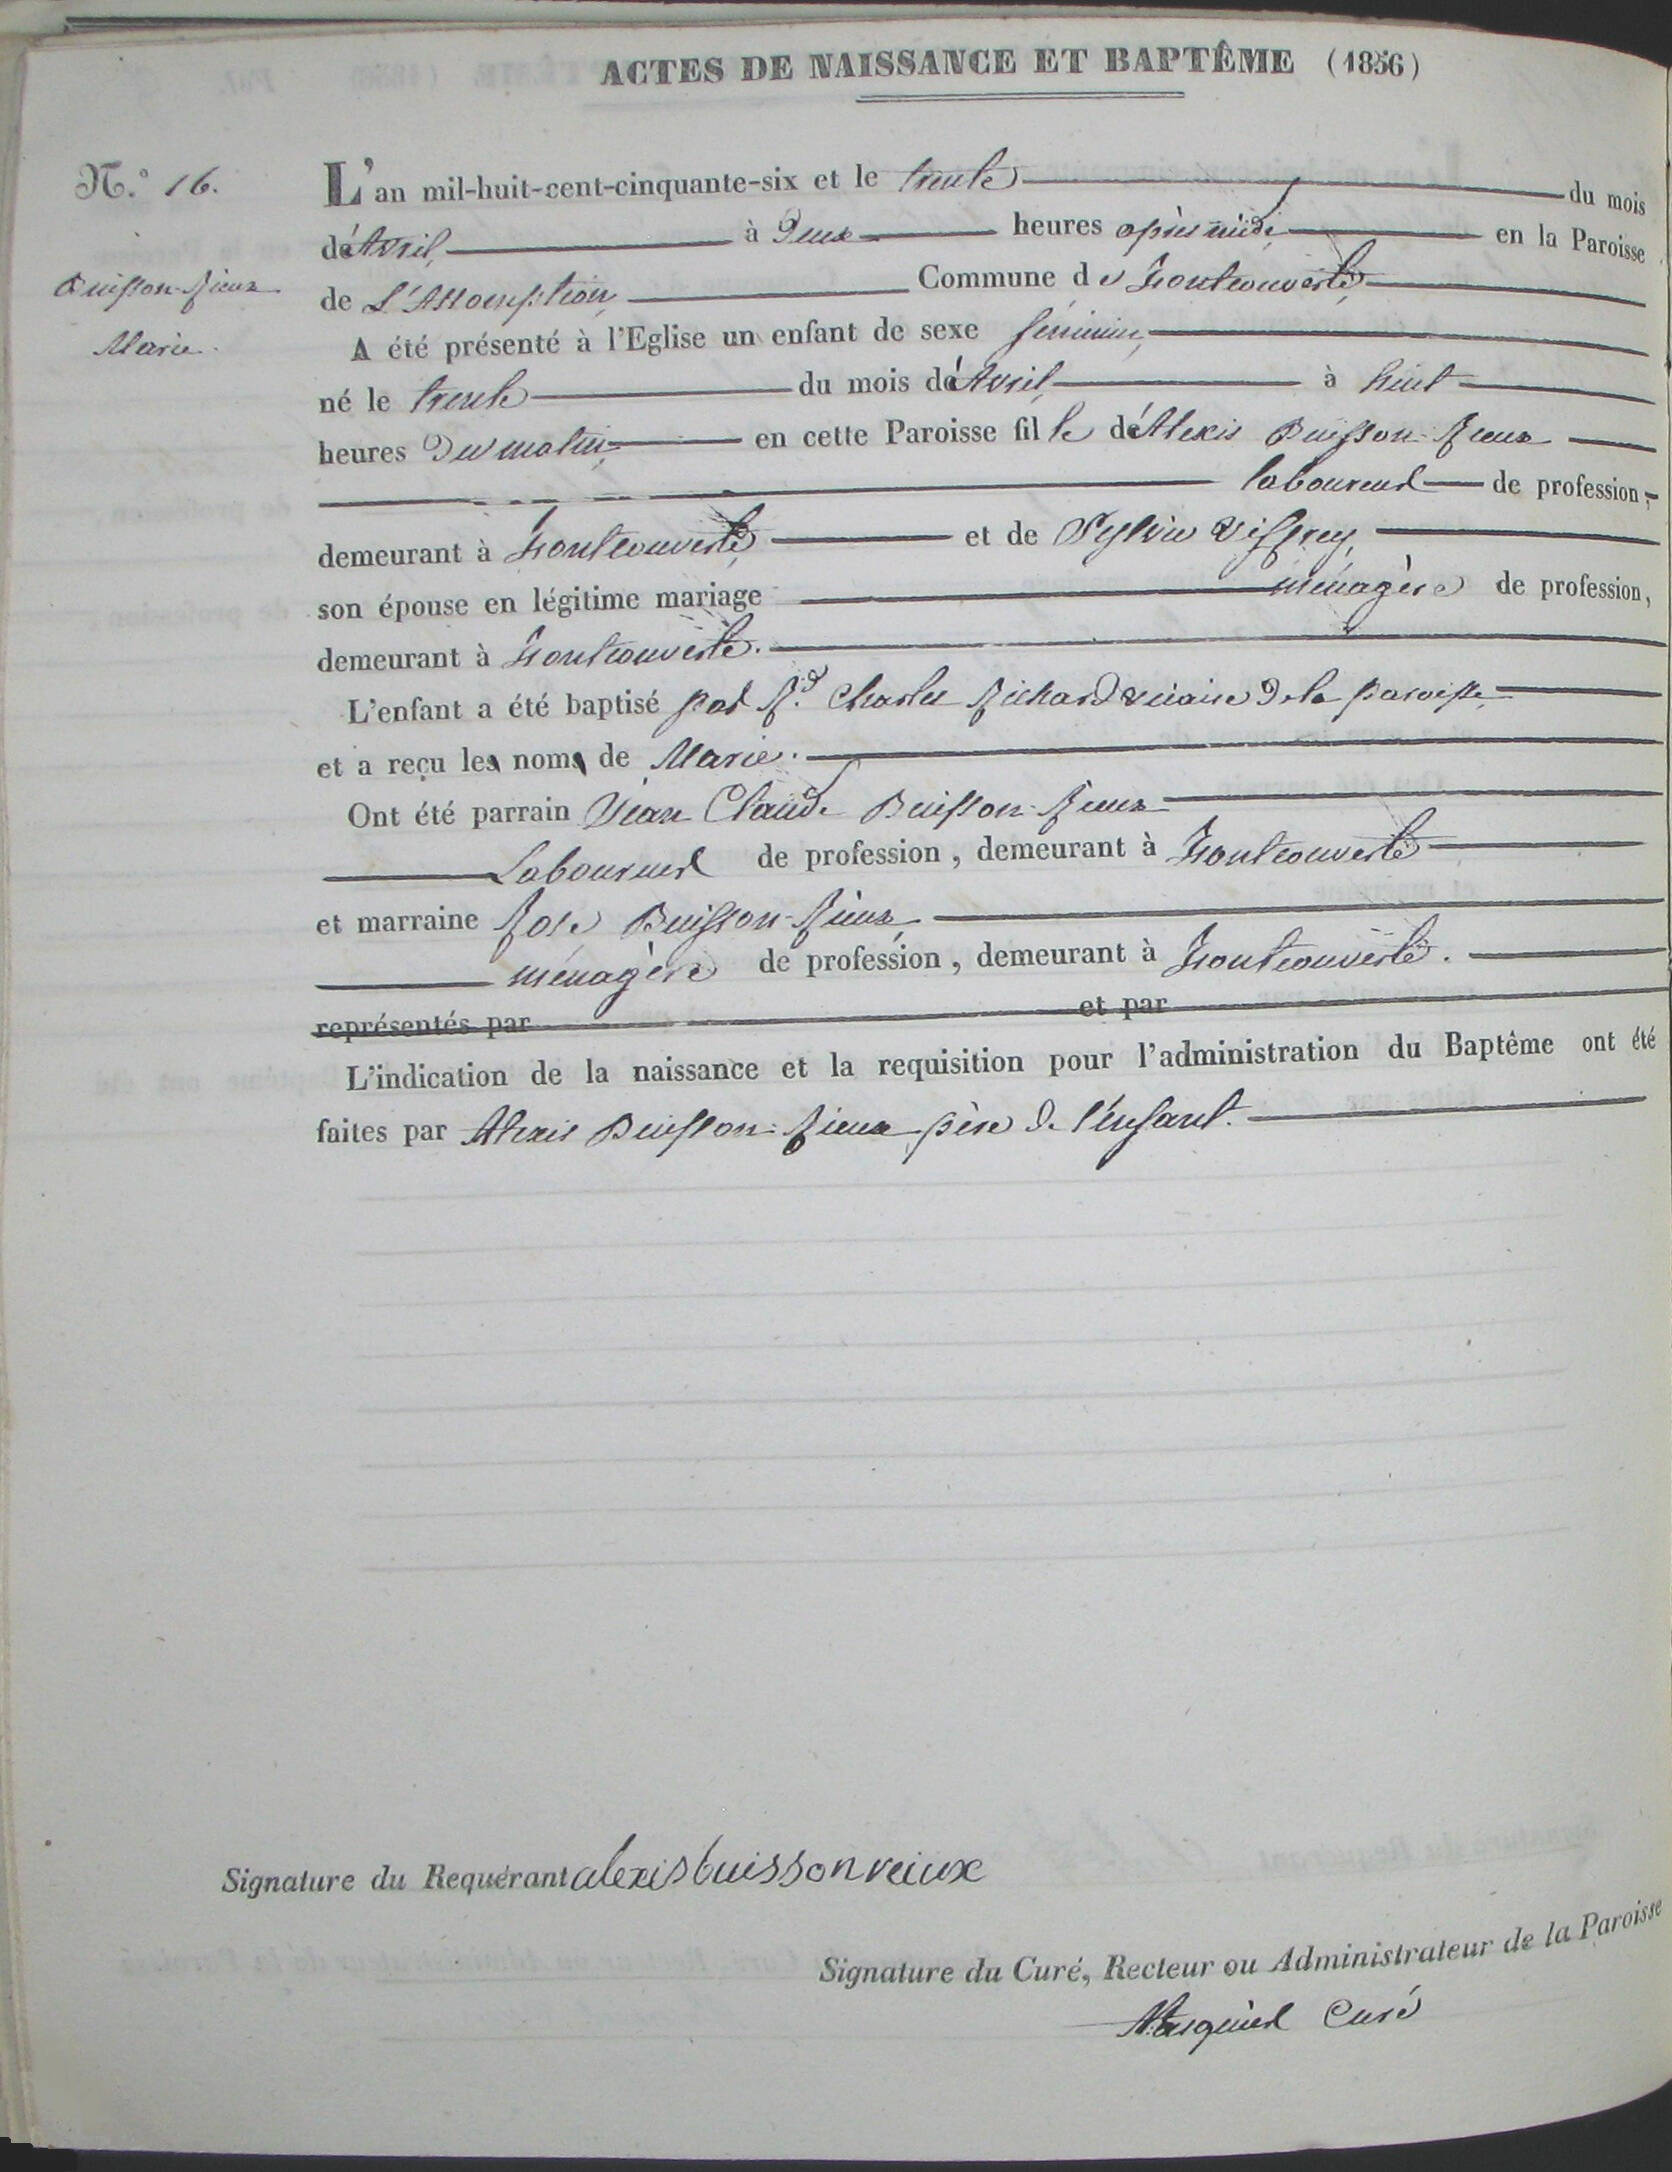 ACTES DE NAISSANCE ET BAPTÊME (1856)
N.° 16.
Buisson-Rieux
Marie.
L'an mil-huit-cent-cinquante-six et le trente du mois
d'Avril, à Deux heures après midi, en la Paroisse
de L'Assomption, Commune de Fontcouverte,
A été présenté à l'Eglise un enfant de sexe féminin,
né le trente du mois d'Avril, à huit
heures Du matin, en cette Paroisse fille d'Alexis Buisson-Rieux
laboureur de profession,
demeurant à Fontcouverte, et de Sylvie
son épouse en légitime mariage ménagère de profession,
demeurant à Fontcouverte.
L'enfant a été baptisé par Rd. Charles Richard vicaire De la paroisse,
et a reçu les noms de Marie.
Ont été parrain Jean Claude Buisson-Rieux
Laboureur de profession, demeurant à Fontcouverte
et marraine Rose Buisson-Rieux,
ménagère de profession, demeurant à Fontcouverte.
représentés par et par
L'indication de la naissance et la requisition pour l'administration du Baptême ont été
faites par Alexis Buisson-Rieux père de l'enfant.
Signature du Requérant alexis buisson reiux
Signature du Curé, Recteur ou Administrateur de la Paroisse
Curé